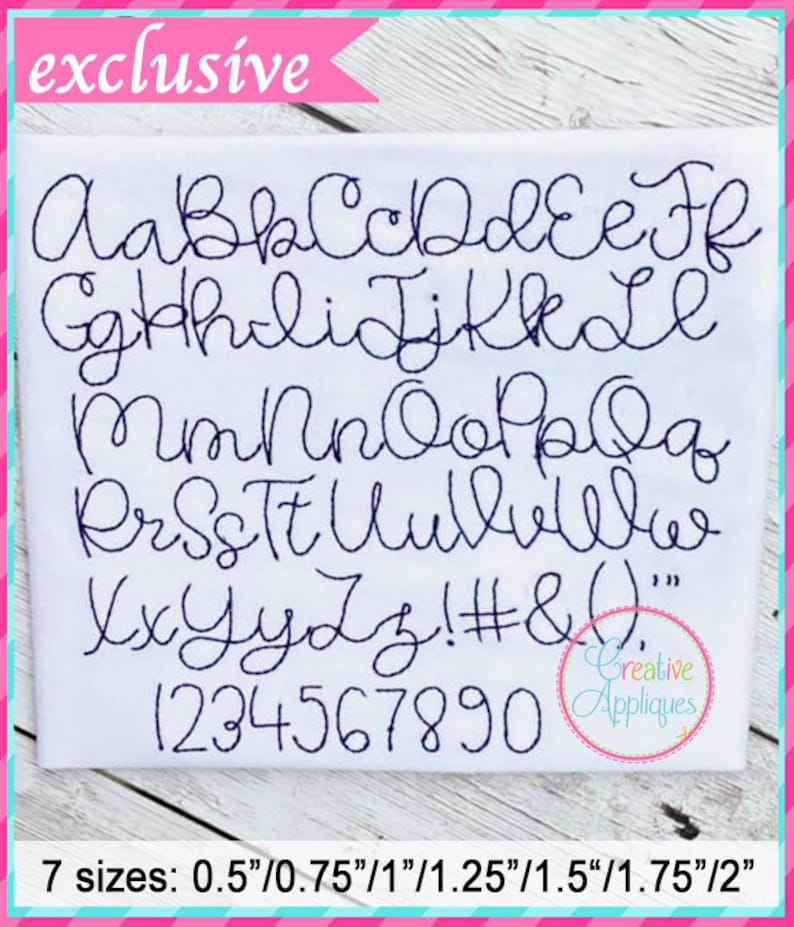 exclusive
AaBbCcDdEeFf
GgHhIiJjKkLl
MmNnOoPpQq
RrSsTtUuVvWw
XxYyZz!#&(),'"
1234567890
Creative
Appliques
7 sizes: 0.5”/0.75”/1”/1.25”/1.5“/1.75”/2”